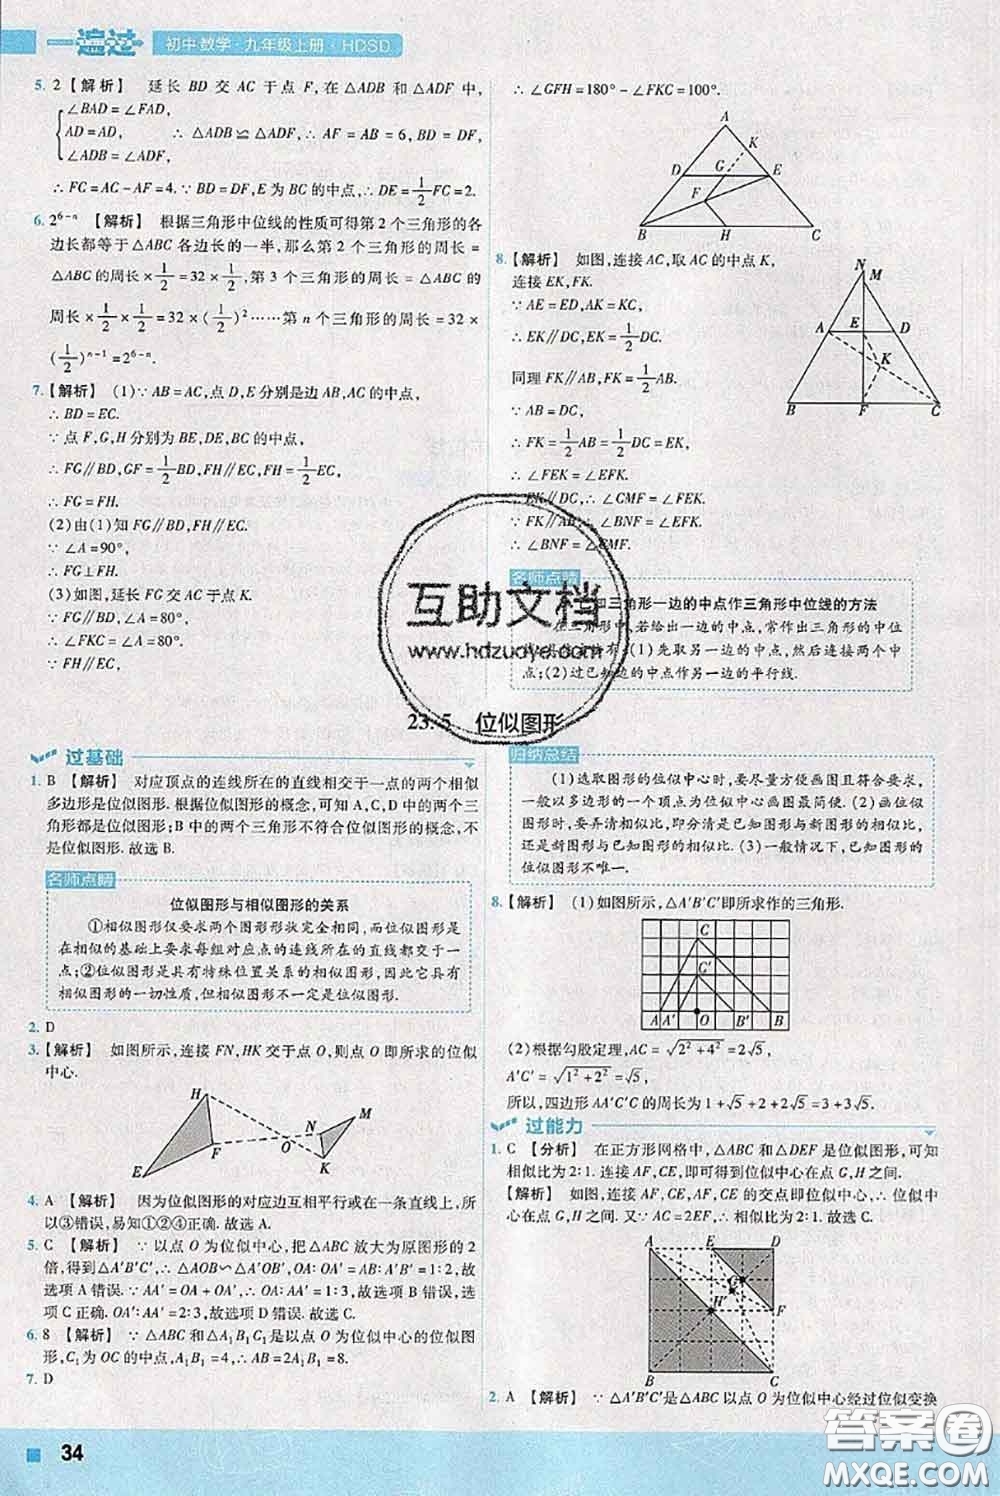 一遍过 初中数学·九年级上册·HDSD
5. 2【解析】 延长 BD 交 AC 于点 F,在 △ADB 和 △ADF 中,
{∠BAD = ∠FAD,
AD = AD, ∴ △ADB ≌ △ADF,∴ AF = AB = 6,BD = DF,
∠ADB = ∠ADF,
∴ FC = AC − AF = 4. ∵ BD = DF,E 为 BC 的中点,∴ DE = 1/2 FC = 2.
6. 2^(6−n) 【解析】 根据三角形中位线的性质可得第 2 个三角形的各
边长都等于 △ABC 各边长的一半,那么第 2 个三角形的周长 =
△ABC 的周长 × 1/2 = 32 × 1/2,第 3 个三角形的周长 = △ABC 的
周长 × 1/2 × 1/2 = 32 × (1/2)^2 ……第 n 个三角形的周长 = 32 ×
(1/2)^(n−1) = 2^(6−n).
7.【解析】 (1)∵ AB = AC,点 D,E 分别是边 AB,AC 的中点,
∴ BD = EC.
∵ 点 F,G,H 分别为 BE,DE,BC 的中点,
∴ FG∥BD,GF = 1/2 BD,FH∥EC,FH = 1/2 EC,
∴ FG = FH.
(2)由(1)知 FG∥BD,FH∥EC.
∵ ∠A = 90°,
∴ FG⊥FH.
(3)如图,延长 FG 交 AC 于点 K.
∵ FG∥BD,∠A = 80°,
∴ ∠FKC = ∠A = 80°.
∵ FH∥EC,
∴ ∠GFH = 180° − ∠FKC = 100°.
A
K
D G E
F
B H C
8.【解析】 如图,连接 AC,取 AC 的中点 K,
连接 EK,FK.
∵ AE = ED,AK = KC,
∴ EK∥DC,EK = 1/2 DC.
同理 FK∥AB,FK = 1/2 AB.
∵ AB = DC,
∴ FK = 1/2 AB = 1/2 DC = EK,
∴ ∠FEK = ∠EFK.
∵ EK∥DC,∴ ∠CMF = ∠FEK.
∵ FK∥AB,∴ ∠BNF = ∠EFK.
∴ ∠BNF = ∠CMF.
N
M
A E D
K
B F C
名师点睛
和三角形一边的中点作三角形中位线的方法
在三角形中,若给出一边的中点,常作出三角形的中位
线,具体方法有:(1)先取另一边的中点,然后连接两个中
点;(2)过已知边的中点作另一边的平行线.
互助文档
www.hdzuoye.com
23.5 位似图形
过基础
1. B 【解析】 对应顶点的连线所在的直线相交于一点的两个相似
多边形是位似图形. 根据位似图形的概念,可知 A,C,D 中的两个三
角形都是位似图形;B 中的两个三角形不符合位似图形的概念,不
是位似图形. 故选 B.
名师点睛
位似图形与相似图形的关系
①相似图形仅要求两个图形形状完全相同,而位似图形
在相似的基础上要求每组对应点的连线所在的直线都交于一
点;②位似图形是具有特殊位置关系的相似图形,因此位似
图形具有相似图形的一切性质,但相似图形不一定是位似图形.
2. D
3.【解析】 如图所示,连接 FN,HK 交于点 O,则点 O 即所求的位似
中心.
H
M
N
O
F
K
E
4. A 【解析】 因为位似图形的对应边互相平行或在一条直线上,所
以③错误,易知①②④正确. 故选 A.
5. C 【解析】 ∵ 以点 O 为位似中心,把 △ABC 放大为原图形的 2
倍,得到 △A′B′C′,∴ △AOB∽△A′OB′,OA∶OA′ = AB∶A′B′ = 1∶2,故
选项 A 错误. ∵ AA′ = OA + OA′,∴ OA∶AA′ = 1∶3,故选项 B 错误,选
项 C 正确. OA′∶AA′ = 2∶3,故选项 D 错误. 故选 C.
6. 8 【解析】 ∵ △ABC 和 △A₁B₁C₁ 是以点 O 为位似中心的位似图
形,C₁ 为 OC 的中点,A₁B₁ = 4,∴ AB = 2A₁B₁ = 8.
7. D
归纳总结
(1)选取图形的位似中心时,要尽量方便画图且符合要求,
一般以多边形的一个顶点为位似中心画图最简便. (2)画位似
图形时,要弄清相似比,即分清是已知图形与新图形的相似比,
还是新图形与已知图形的相似比. (3)一般情况下,已知图形的
位似图形不唯一.
8.【解析】 (1)如图所示,△A′B′C′即所求作的三角形.
C
C′
A A′ O B′ B
(2)根据勾股定理,AC = √(2²+4²) = 2√5,
A′C′ = √(1²+2²) = √5,
所以,四边形 AA′C′C 的周长为 1 + √5 + 2 + 2√5 = 3 + 3√5.
过能力
1. C 【分析】 在正方形网格中,△ABC 和 △DEF 是位似图形,可知
相似比为 2∶1. 连接 AF,CE,即可得到位似中心在点 G,H 之间.
【解析】 如图,连接 AF,CE,AF,CE 的交点即位似中心,位似中心
在点 G,H 之间. 又∵ AC = 2EF,∴ 相似比为 2∶1. 故选 C.
A E D
G
H F
B C
2. A 【解析】 ∵ △A′B′C′是 △ABC 以点 O 为位似中心经过位似变换
34
答案圈
MXQE.COM